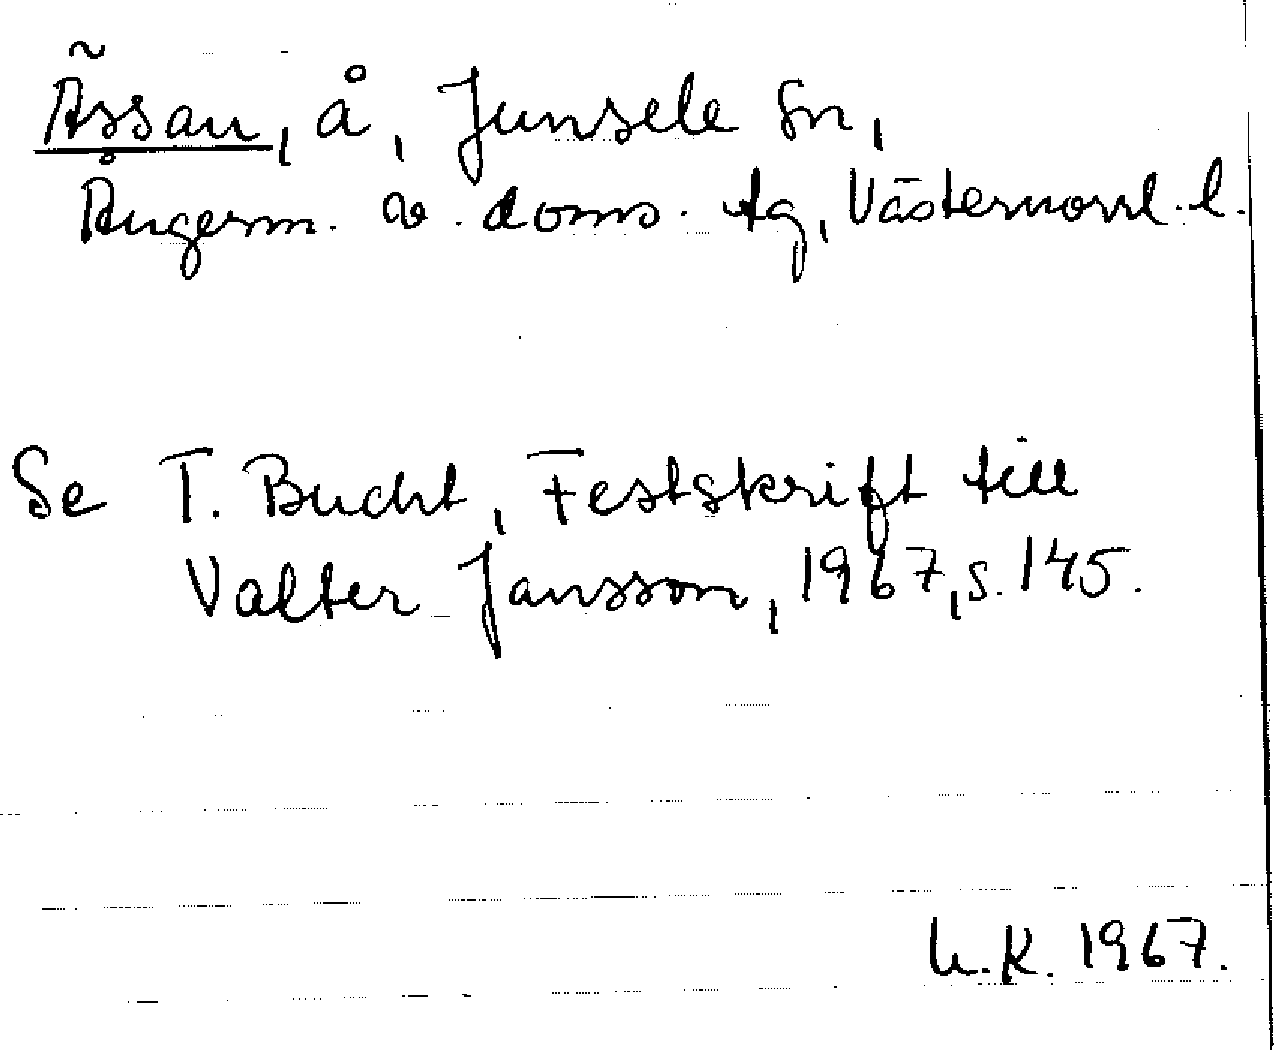 Ässan, å, Junsele sn,
Ångerm. v. doms. tg, Västernorrl. l.
Se T. Bucht, Festskrift till
Valter Jansson, 1967, s. 145.
L.K. 1967.